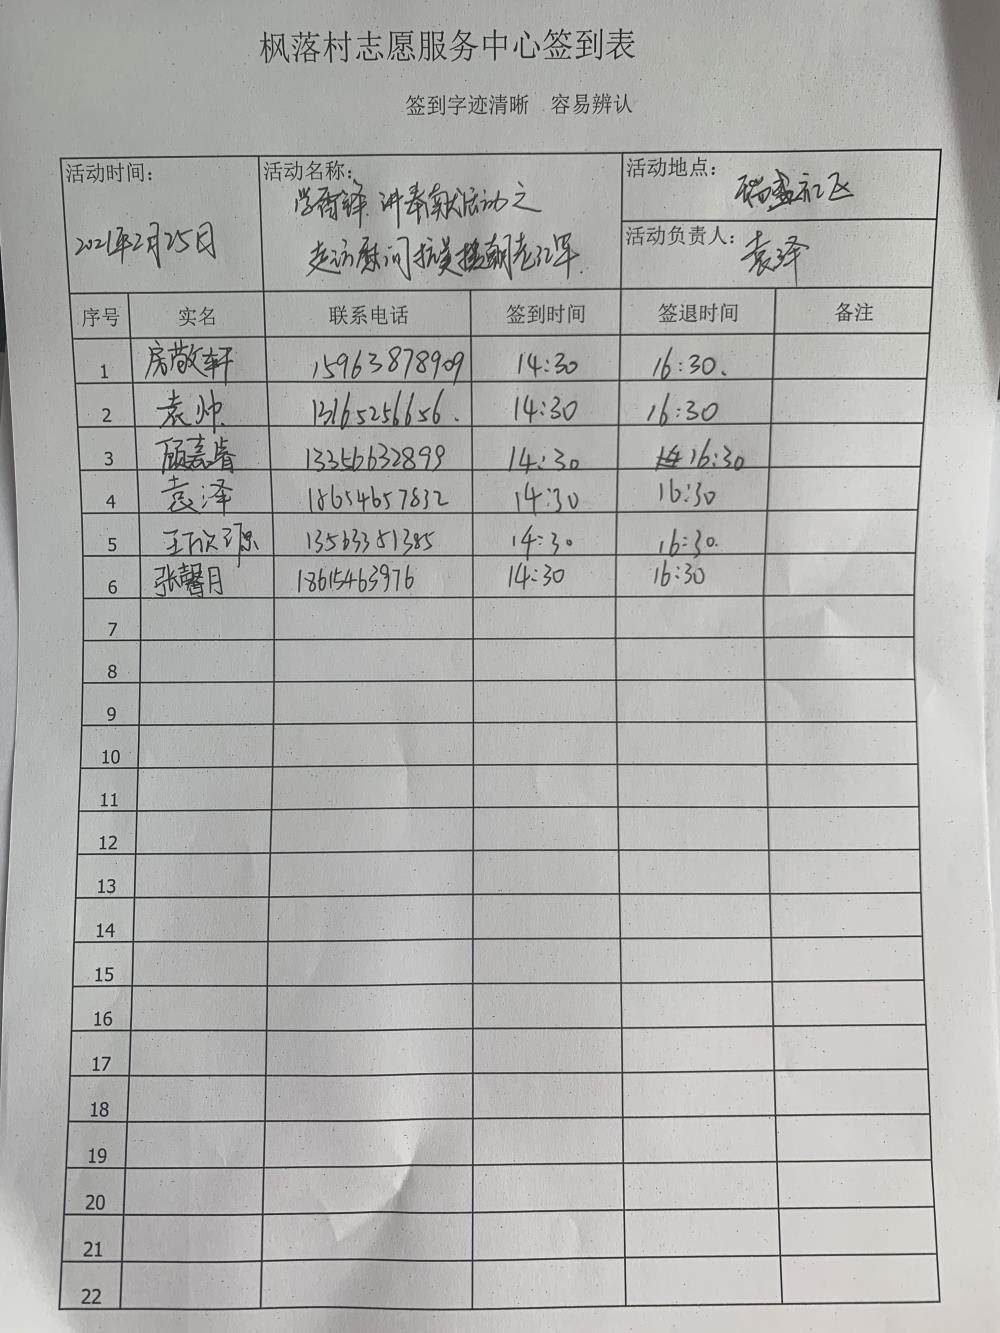 枫落村志愿服务中心签到表
签到字迹清晰 容易辨认
活动时间： 活动名称： 活动地点：
学雷锋 讲奉献活动之 福盛社区
2021年2月25日 走访慰问抗美援朝老红军 活动负责人： 袁泽
序号 实名 联系电话 签到时间 签退时间 备注
1 房敬轩 15963878909 14:30 16:30.
2 袁帅 13165256656. 14:30 16:30
3 顾嘉睿 13356632899 14:30 16:30
4 袁泽 18654657832 14:30 16:30
5 王欣源 13563351385 14:30 16:30.
6 张馨月 18615463976 14:30 16:30
7
8
9
10
11
12
13
14
15
16
17
18
19
20
21
22